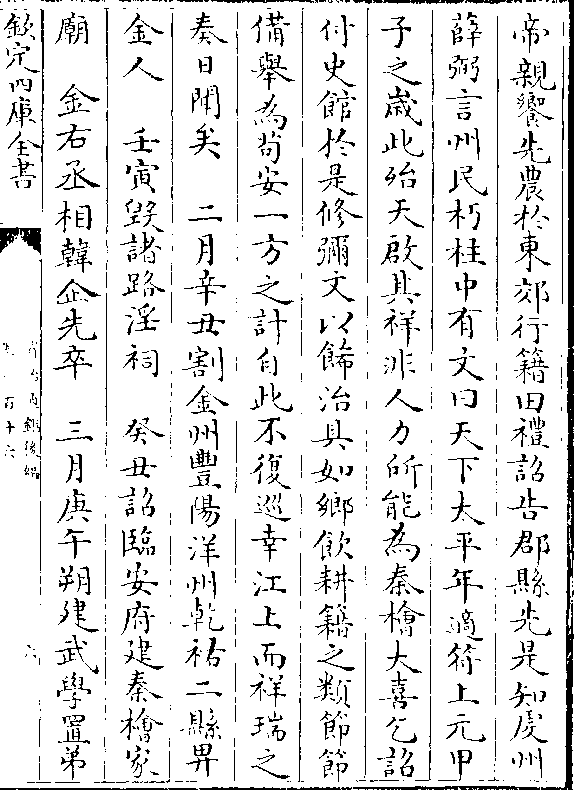 帝親饗先農於東郊行籍田禮詔告郡縣先是知䖍州
薛弼言州民朽柱中有文曰天下太平年適符上元甲
子之歲此殆天啟其祥非人力所能為秦檜大喜乞詔
付史館於是修彌文以餙治具如鄉飲耕籍之類節節
備舉為茍安一方之計自此不復巡幸江上而祥瑞之
奏日聞矣　二月辛丑割金州豐陽洋州乾祐二縣畀
金人　壬寅毀諸路淫祠　癸丑詔臨安府建秦檜家
廟　金右丞相韓企先卒　三月庚午朔建武學置弟
欽定四庫全書
資治通鑑後編
百十六
六